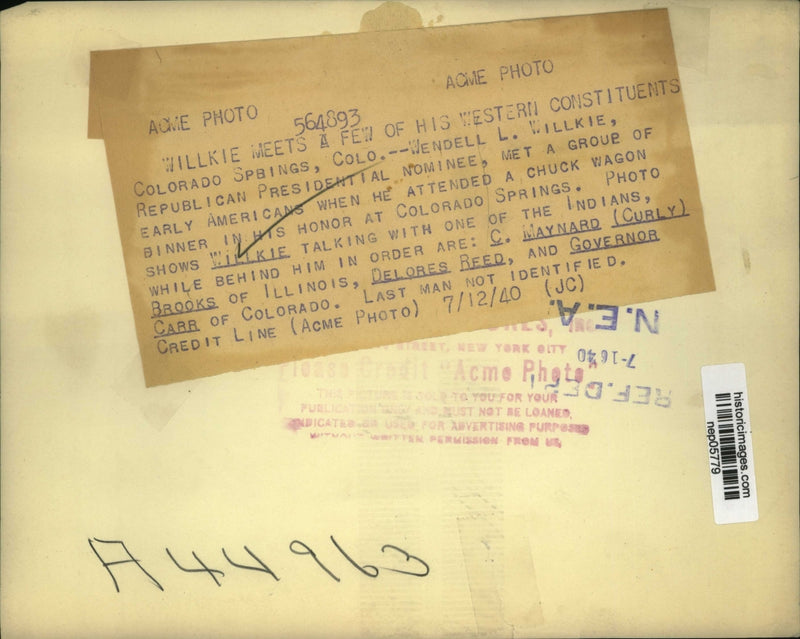 ACME PHOTO
ACME PHOTO 564893
WILLKIE MEETS A FEW OF HIS WESTERN CONSTITUENTS
COLORADO SPBINGS, COLO.--WENDELL L. WILLKIE,
REPUBLICAN PRESIDENTIAL NOMINEE, MET A GROUP OF
EARLY AMERICANS WHEN HE ATTENDED A CHUCK WAGON
DINNER IN HIS HONOR AT COLORADO SPRINGS. PHOTO
SHOWS WILLKIE TALKING WITH ONE OF THE INDIANS,
WHILE BEHIND HIM IN ORDER ARE: C. MAYNARD (CURLY)
BROOKS OF ILLINOIS, DELORES REED, AND GOVERNOR
CARR OF COLORADO. LAST MAN NOT IDENTIFIED.
CREDIT LINE (ACME PHOTO) 7/12/40 (JC)
N.E.A.
7-16 40
REF. DEPT
STREET, NEW YORK CITY
Please Credit "Acme Photo"
THIS PICTURE IS SOLD TO YOU FOR YOUR
PUBLICATION ONLY AND MUST NOT BE LOANED,
SYNDICATED OR USED FOR ADVERTISING PURPOSES
WITHOUT WRITTEN PERMISSION FROM US.
historicimages.com
nep05779
A44963